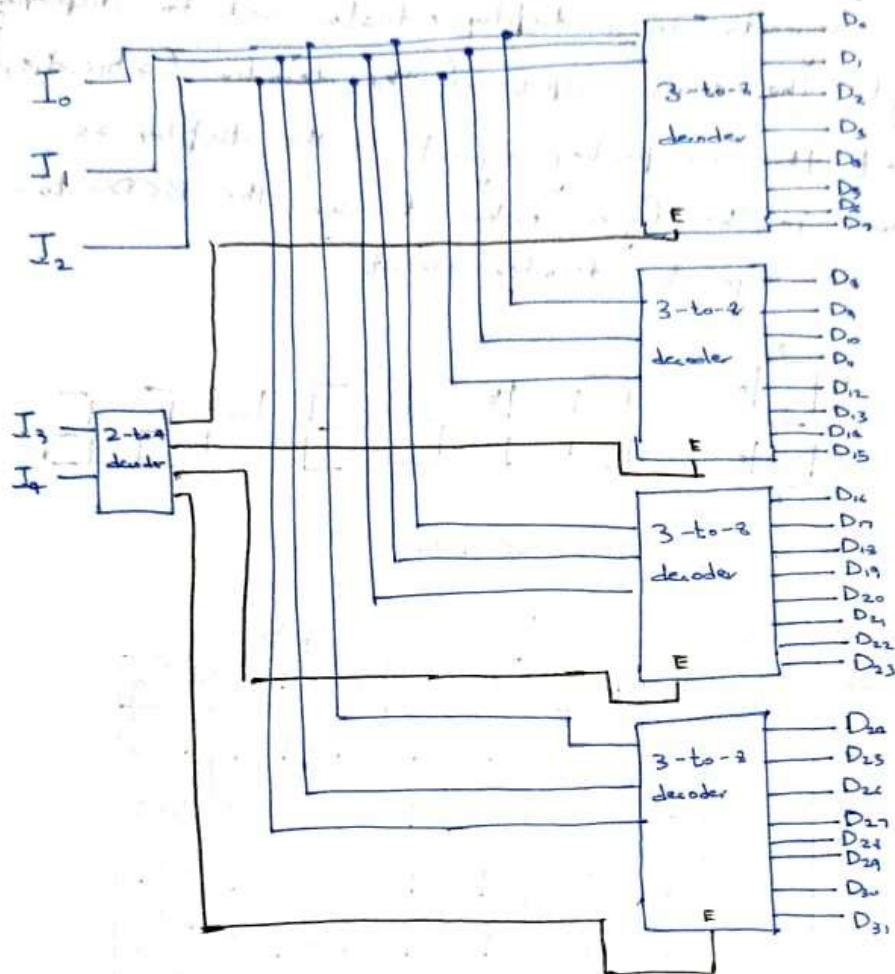 I₀
I₁
I₂
I₃
I₄
2-to-4
decoder
3-to-8
decoder
E
D₀
D₁
D₂
D₃
D₇
3-to-8
decoder
E
D₈
D₉
D₁₀
D₁₁
D₁₂
D₁₃
D₁₄
D₁₅
3-to-8
decoder
E
D₁₆
D₁₇
D₁₈
D₁₉
D₂₀
D₂₁
D₂₂
D₂₃
3-to-8
decoder
E
D₂₄
D₂₅
D₂₆
D₂₇
D₂₈
D₂₉
D₃₀
D₃₁